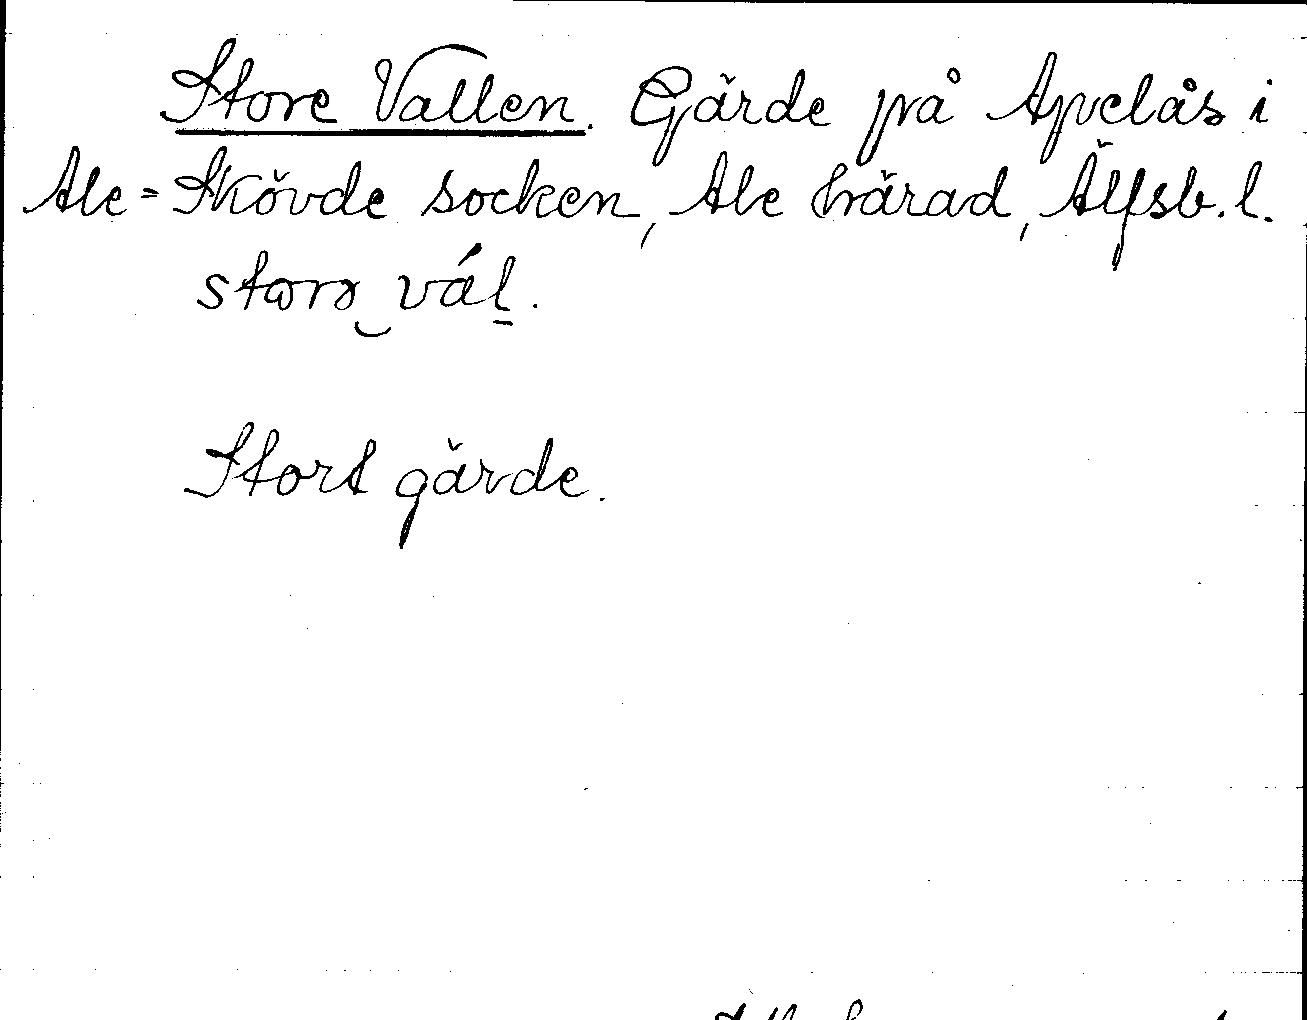 Store Vallen. Gärde på Apelås i
Ale-Skövde socken, Ale härad, Älfsb. l.
Stort gärde.